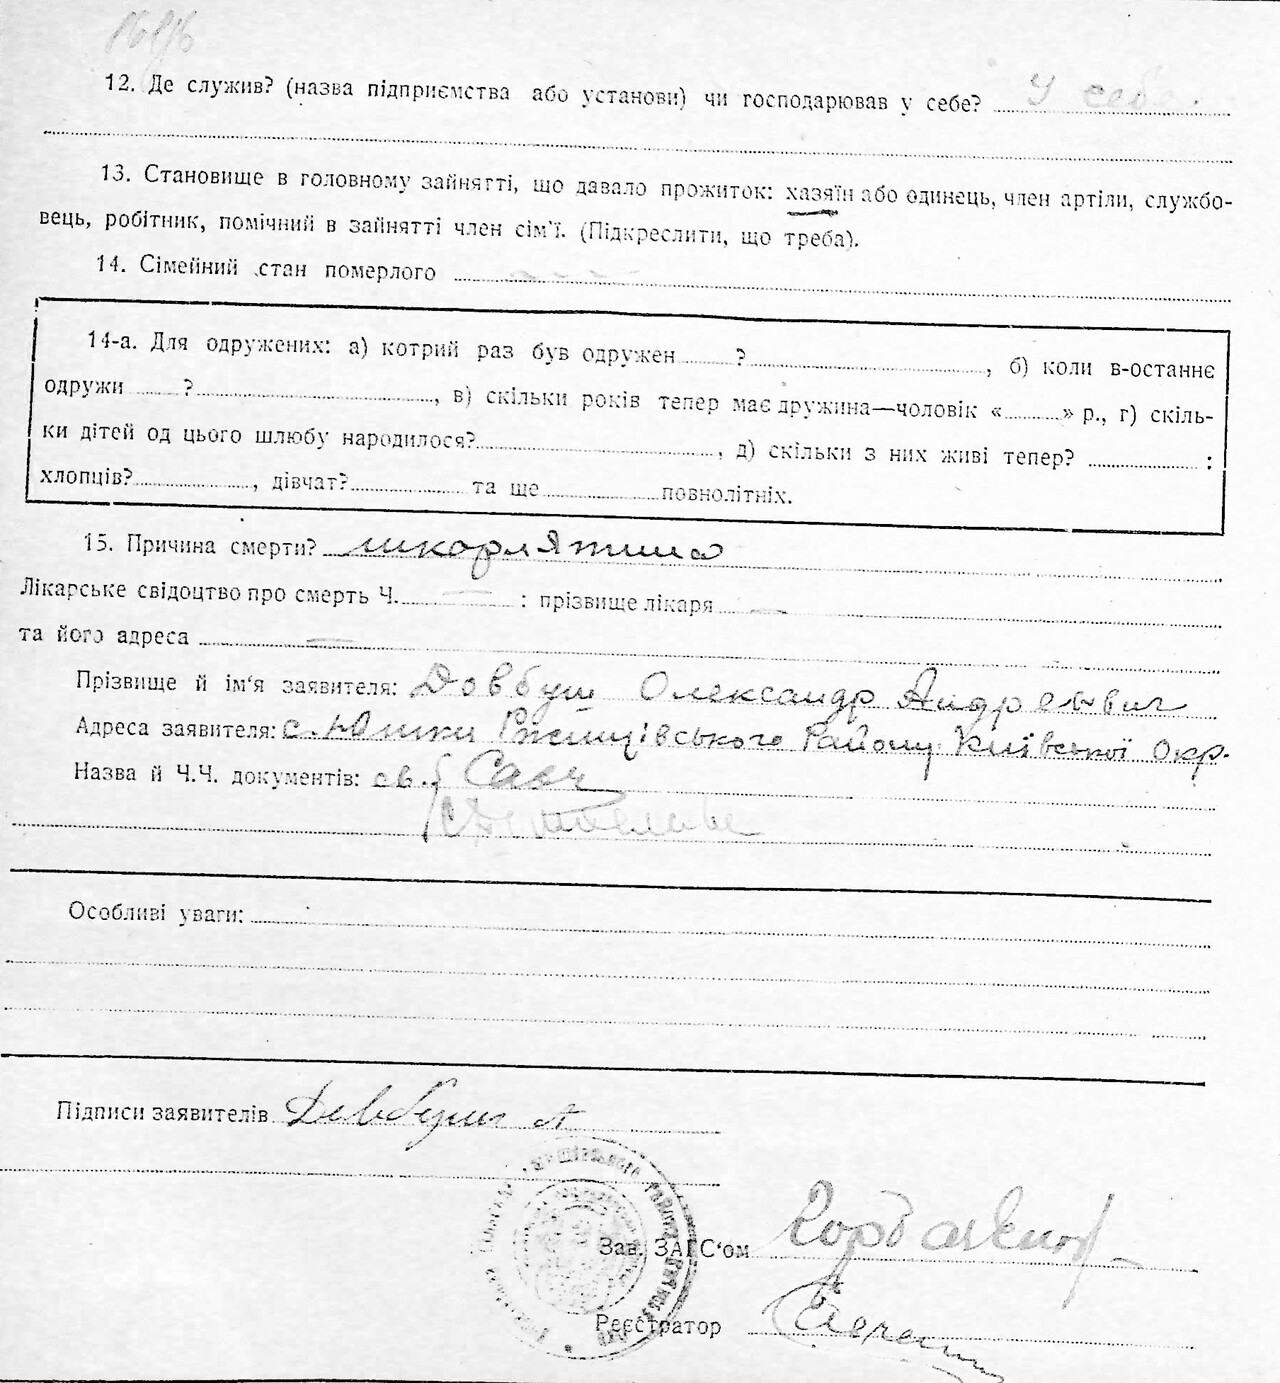 12. Де служив? (назва підприємства або установи) чи господарював у себе? У себе.
13. Становище в головному зайнятті, що давало прожиток: хазяїн або одинець, член артіли, службо-
вець, робітник, помічний в зайнятті член сім'ї. (Підкреслити, що треба).
14. Сімейний стан померлого
14-а. Для одружених: а) котрий раз був одружен ? , б) коли в-останнє
одружи ? , в) скільки років тепер має дружина—чоловік « » р., г) скіль-
ки дітей од цього шлюбу народилося? , д) скільки з них живі тепер? :
хлопців? , дівчат? та ще повнолітніх.
15. Причина смерти? шкорлятина
Лікарське свідоцтво про смерть Ч. — : прізвище лікаря —
та його адреса —
Прізвище й ім'я заявителя: Довбуш Олександр Андреевич
Адреса заявителя: с. Юшки Ржищівського Району Київської Окр.
Назва й Ч.Ч. документів:
Особливі уваги:
Підписи заявителів Довбуш А
Зав. ЗАГС'ом
Реєстратор